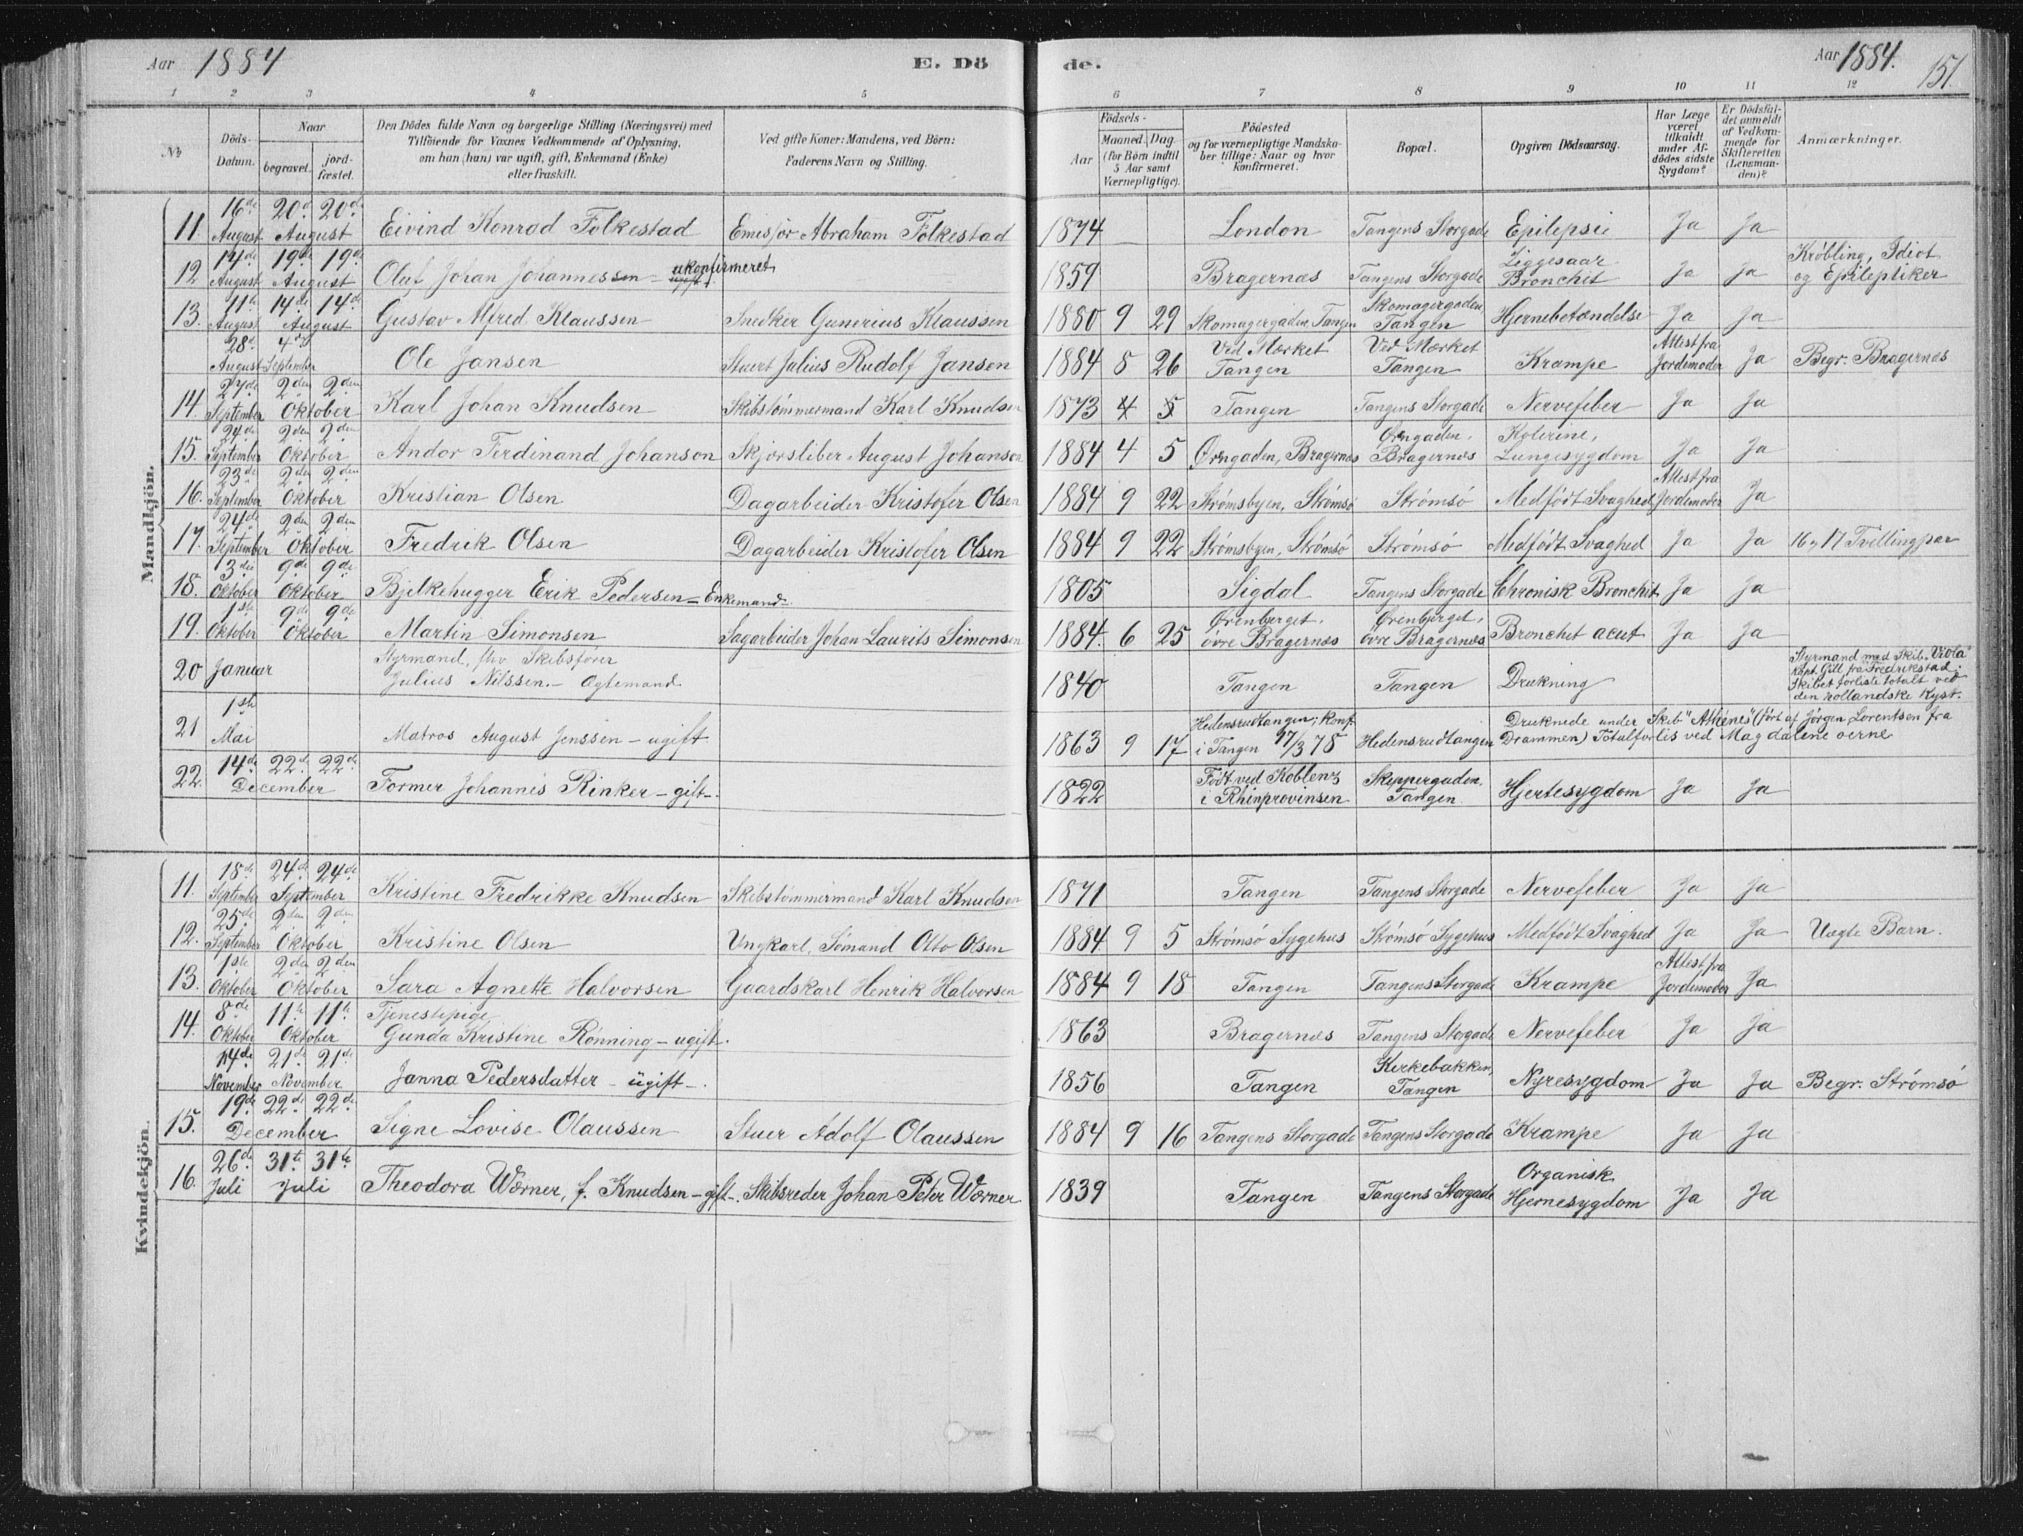 Aar 1884 E. Dö de. Aar 1884. 151.
1 2 3 4 5 6 7 8 9 10 11 12
№ Döds-Datum. Naar begravet. jordfæstet. Den Dödes fulde Navn og borgerlige Stilling (Næringsvei) med Tilföiende for Voxnes Vedkommende af Oplysning, om han (hun) var ugift, gift, Enkemand (Enke) eller fraskilt. Ved gifte Koner: Mandens, ved Börn: Faderens Navn og Stilling. Födsels- Aar Maaned. Dag (for Börn indtil 5 Aar samt Værnepligtige). Födested og for værnepligtige Mandskaber tillige: Naar og hvor konfirmeret. Bopæl. Opgiven Dödsaarsag. Har Læge været tilkaldt under Afdödes sidste Sygdom? Er Dödsfaldet anmeldt af Vedkommende for Skifteretten (Lensmanden)? Anmærkninger.
Mandkjön.
11. 16de August 20de 20de August Eivind Konrad Folkestad Emisjør Abraham Folkestad 1874 London Tangens Storgade Epilepsie Ja Ja
12 14de August 19de 19de August Oluf Johan Johannessen - ukonfirmeret ugift. 1859 Bragernæs Tangens Storgade Liggesaar Bronchit Ja Ja Krøbling, Idiot og Epileptiker
13. 11te August 14de 14de August Gustav Alfred Klaussen Snedker Gunerius Klaussen 1880 9 29 Skomagergaden, Tangen Skomagergaden Tangen Hjernebetændelse Ja Ja
28de August 4de September Ole Jansen Stuert Julius Rudolf Jansen 1884 8 26 Ved Mærket Tangen Ved Mærket Tangen Krampe Attest fra Jordemoder Ja Begr. Bragernæs
14. 27de September 2den 2den Oktober Karl Johan Knudsen Skibstømmermand Karl Knudsen 1873 4 5 Tangen Tangens Storgade Nervefeber Ja Ja
15. 24de September 2den 2den Oktober Andor Ferdinand Johanson Skjærsliber August Johanson 1884 4 5 Ørngaden, Bragernæs Ørngaden, Bragernæs Kolerine, Lungesygdom Ja Ja
16. 23de September 2den 2den Oktober Kristian Olsen Dagarbeider Kristofer Olsen 1884 9 22 Strømsbyen, Strømsø Strømsø Medfødt Svaghed Attest fra Jordemoder Ja
17. 24de September 2den 2den Oktober Fredrik Olsen Dagarbeider Kristofer Olsen 1884 9 22 Strømsbyen, Strømsø Strømsø Medfødt Svaghed Ja Ja 16, 17 Tvillingpar
18. 3die Oktober 9de 9de Oktober Bjelkehugger Erik Pedersen - Enkemand. 1805 Sigdal Tangens Storgade Chronisk Bronchit Ja Ja
19. 1ste Oktober 9de 9de Oktober Martin Simonsen Sagarbeider Johan Laurits Simonsen 1884. 6 25 Ørenberget, øvre Bragernæs Ørenberget, øvre Bragernæs Bronchit acut Ja Ja
20 Januar Styrmand, fhv Skibsfører Julius Nilssen. - Ægtemand 1840 Tangen Tangen Drukning Styrmand med Skib "Viola" Kapt. Gill fra Fredrikstad. Skibet forliste totalt ved den hollandske Kyst.
21 1ste Mai Matros August Jenssen - ugift 1863 9 17 Hedensrudtangen; konf. i Tangen 17/3 78 Hedensrudtangen Druknede under Skib "Athenes" (ført af Jørgen Lorentsen fra Drammen) Totalforlis ved Magdalene øerne
22. 14de 22de 22de December Former Johannes Rinker - gift -. 1822 Født ved Koblenz i Rhinprovinsen Skippergaden, Tangen Hjertesygdom Ja Ja
Kvindekjön.
11. 18de September 24de 24de September Kristine Fredrikke Knudsen Skibstømmermand Karl Knudsen 1871 Tangen Tangens Storgade Nervefeber Ja Ja
12. 25de September 2den 2den Oktober Kristine Olsen Ungkarl, Sømand Otto Olsen 1884 9 5 Strømsø Sygehus Strømsø Sygehus Medfødt Svaghed Ja Ja Uægte Barn.
13. 1ste Oktober 2den 2den Oktober Sara Agnette Halvorsen Gaardskarl Henrik Halvorsen 1884 9 18 Tangen Tangens Storgade Krampe Attest fra Jordemoder Ja
14. 8de Oktober 11te 11te Oktober Tjenestepige Gunda Kristine Rønning - ugift. 1863 Bragernæs Tangens Storgade Nervefeber Ja Ja
14de November 21de 21de November Janna Pedersdatter - ugift -. 1856 Tangen Kirkebakken, Tangen Nyresygdom Ja Ja Begr. Strømsø
15. 19de 22de 22de December Signe Lovise Olaussen Stuer Adolf Olaussen 1884 9 16 Tangens Storgade Tangens Storgade Krampe Ja Ja
16. 26de Juli 31te 31te Juli Theodora Wørner, f. Knudsen - gift -. Skibsreder Johan Peter Wørner 1839 Tangen Tangens Storgade Organisk Hjernesygdom Ja Ja